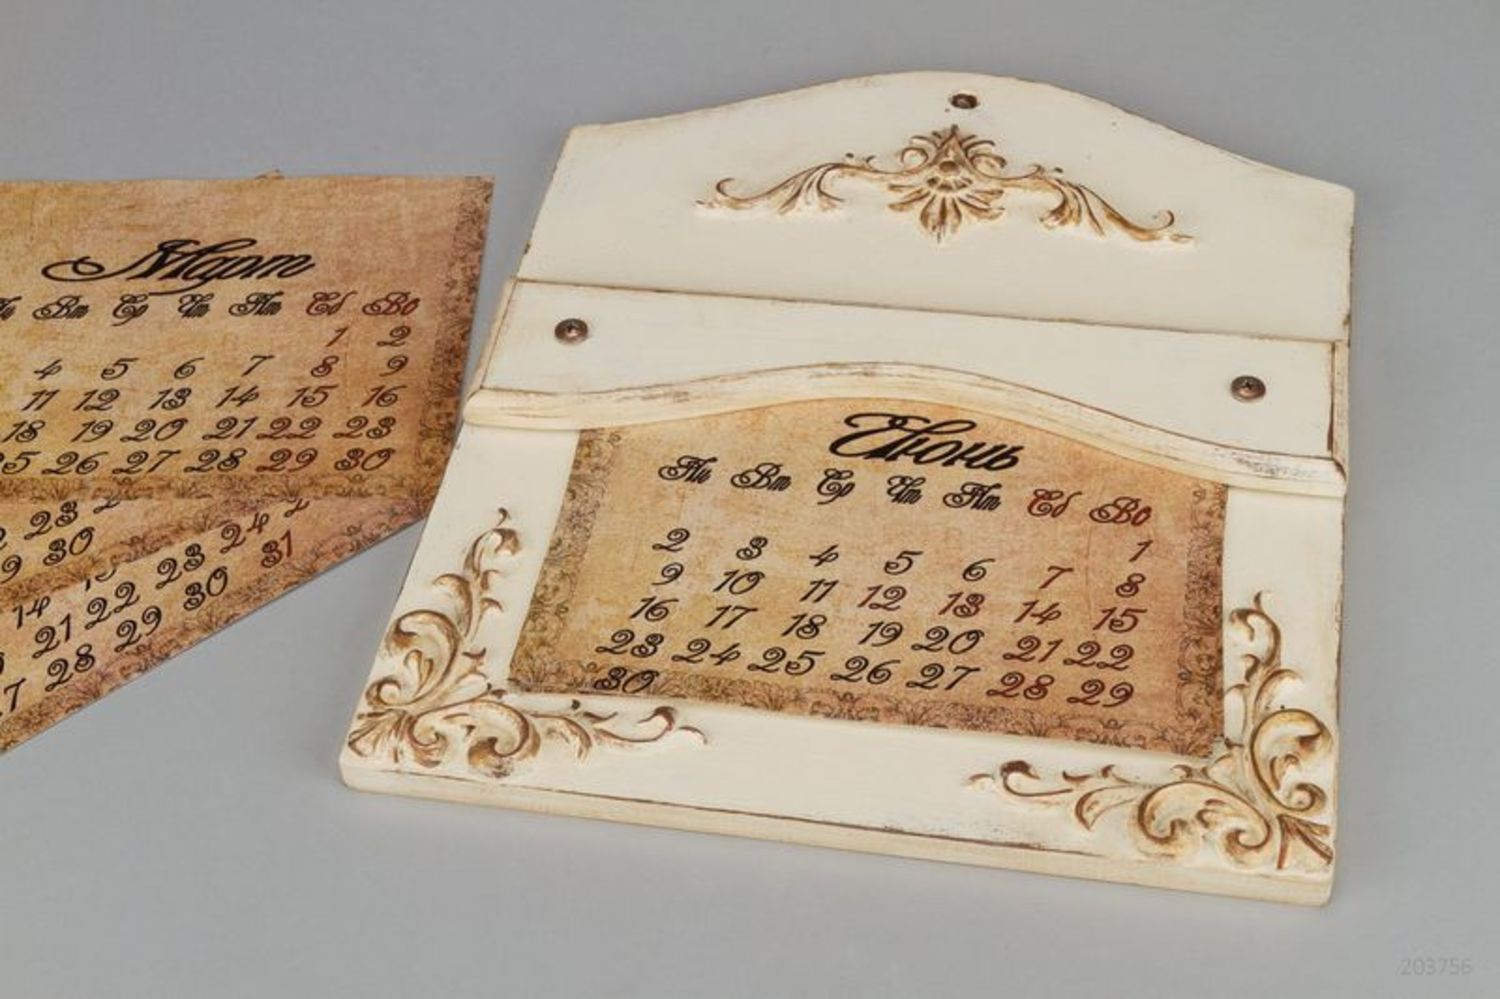 Март
Вт Ср Чт Пт Сб Во
1 2
4 5 6 7 8 9
11 12 13 14 15 16
18 19 20 21 22 23
25 26 27 28 29 30
23
30
14 15 22 23 24
21 22 23 30 31
28 29
Июнь
Пн Вт Ср Чт Пт Сб Во
1
2 3 4 5 6 7 8
9 10 11 12 13 14 15
16 17 18 19 20 21 22
23 24 25 26 27 28 29
30
203756